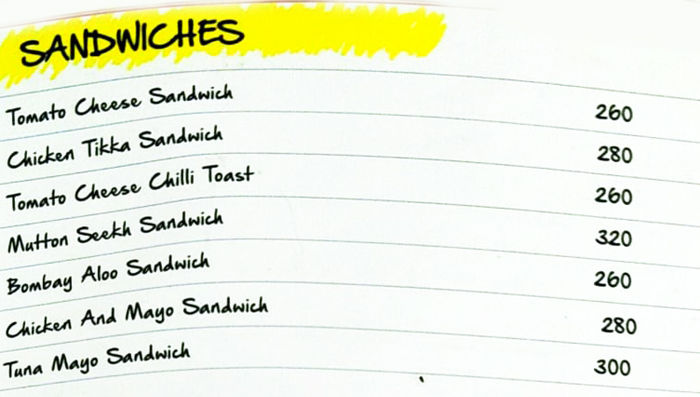 SANDWICHES
Tomato Cheese Sandwich 260
Chicken Tikka Sandwich 280
Tomato Cheese Chilli Toast 260
Mutton Seekh Sandwich 320
Bombay Aloo Sandwich 260
Chicken And Mayo Sandwich 280
Tuna Mayo Sandwich 300